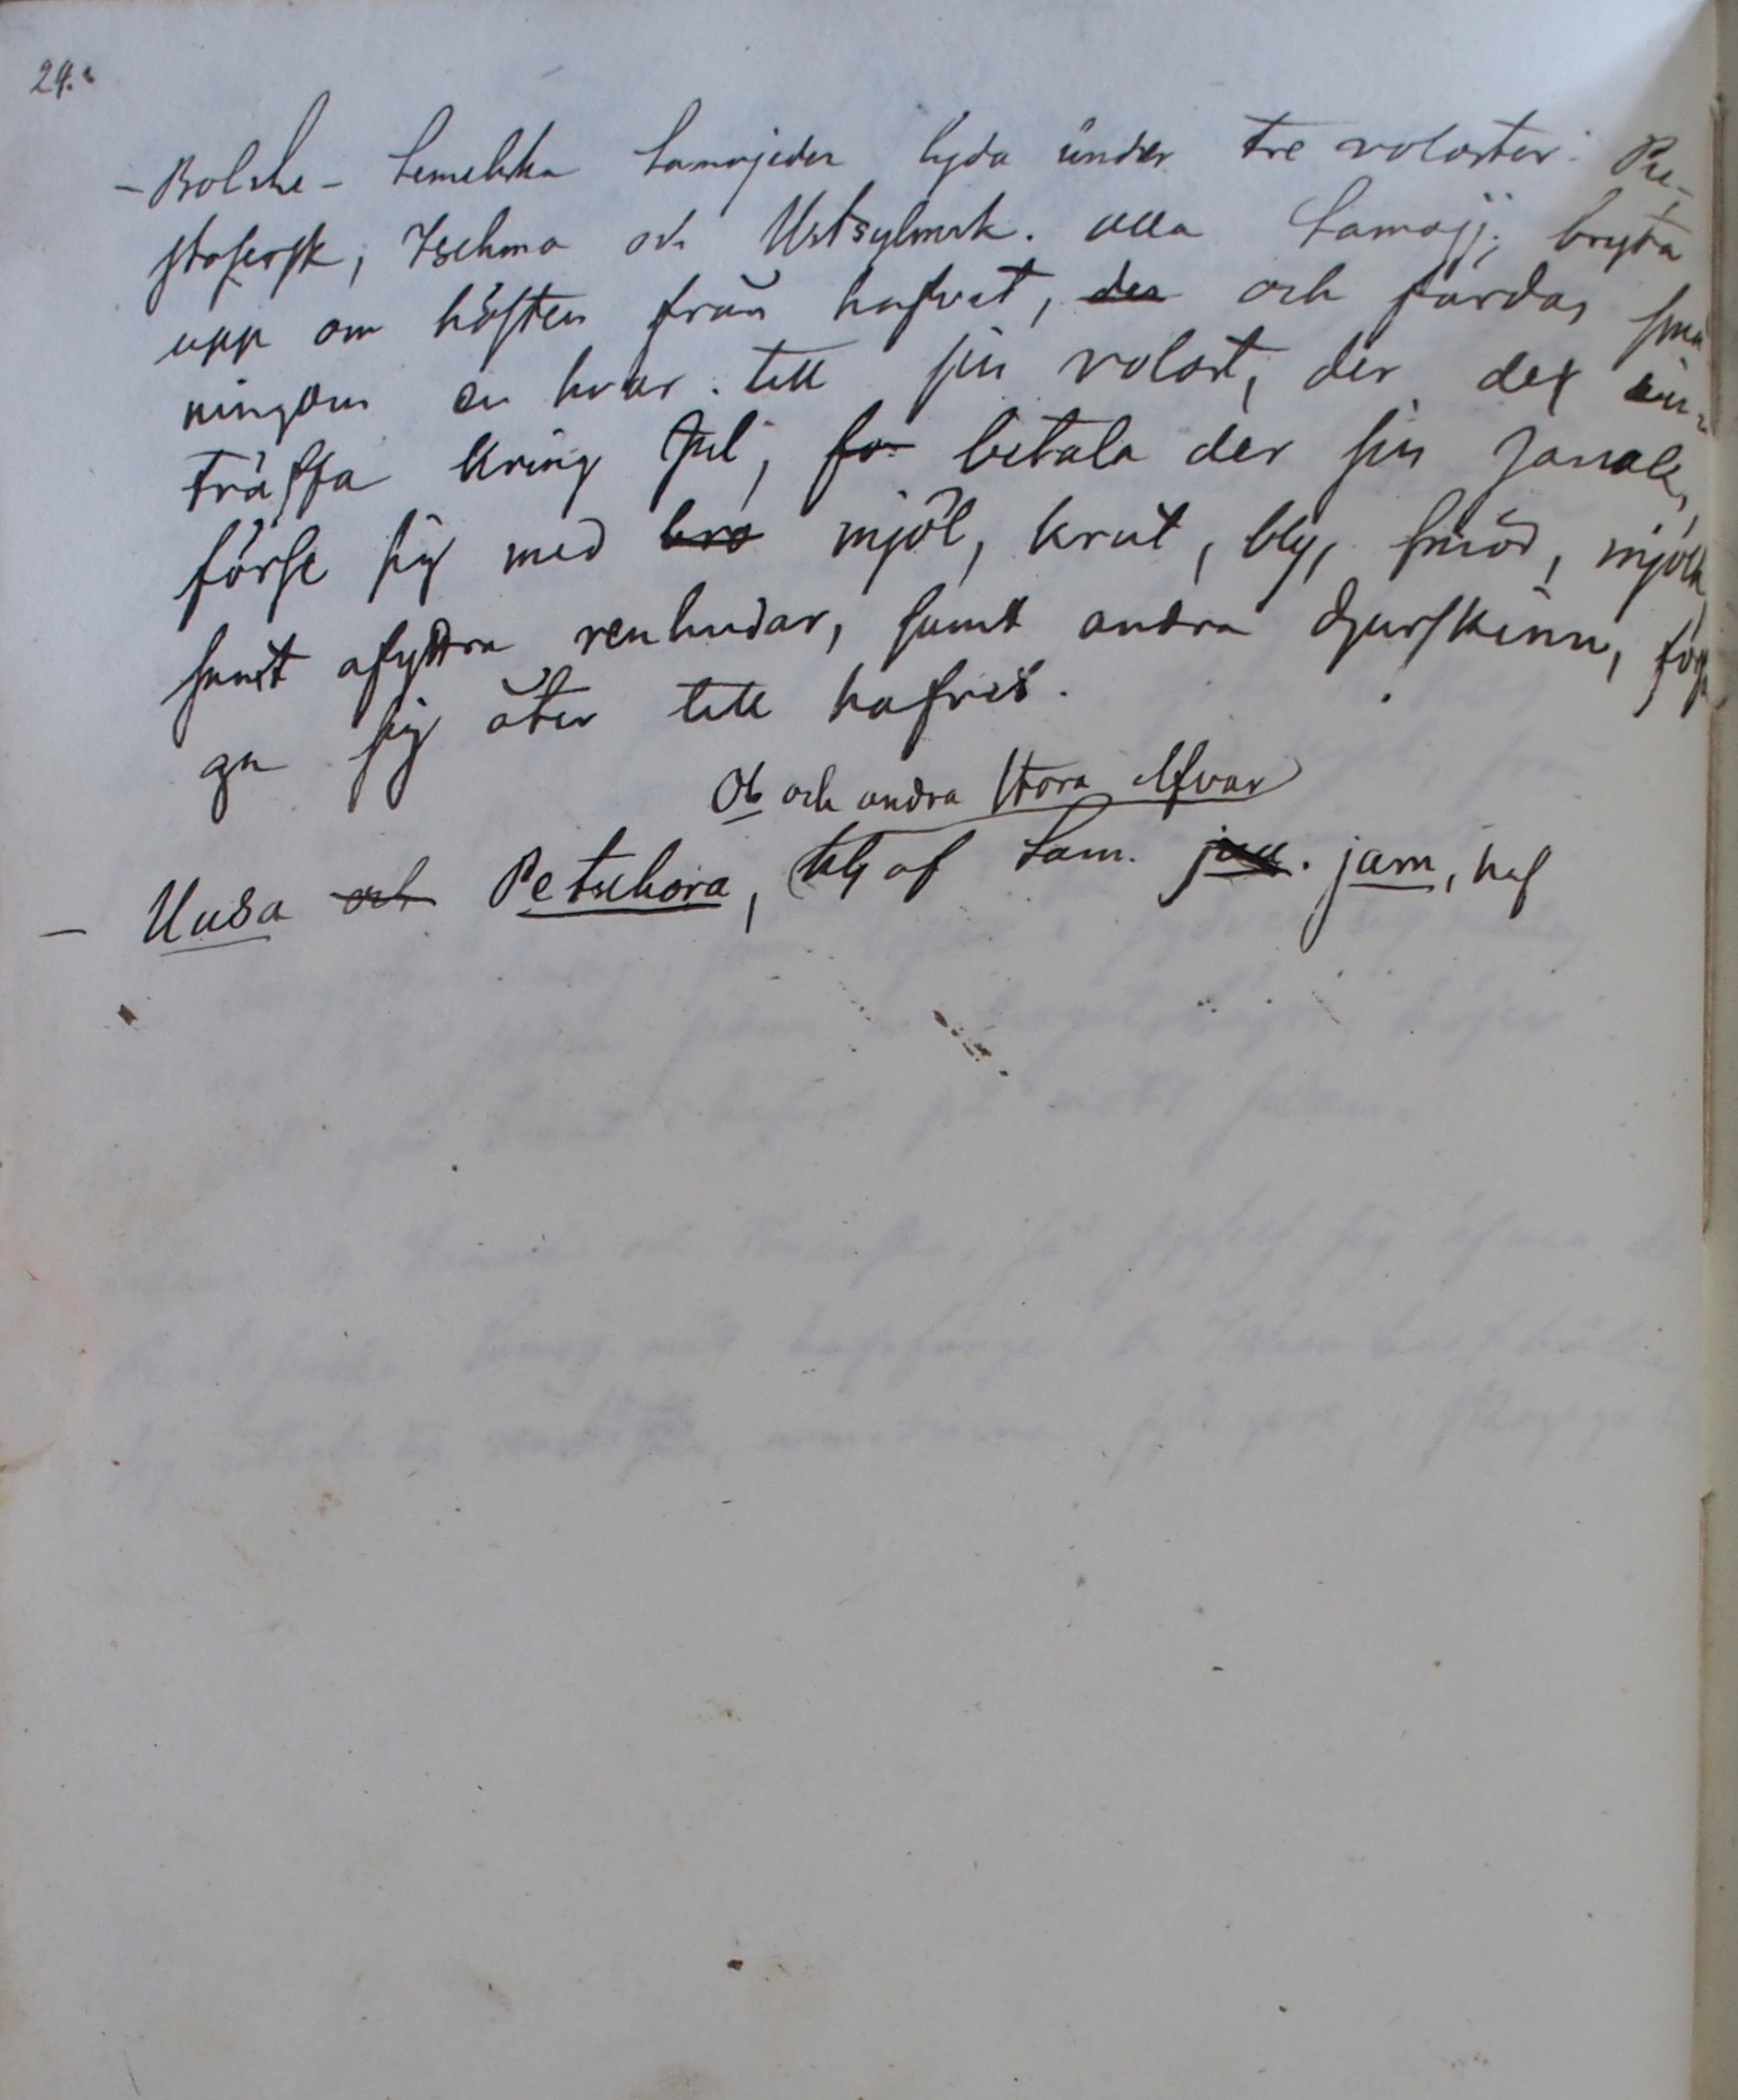 24.
– Bolshe-Semelska Samojeder lyda under tre voloster: Pu-
stosersk, Ischma och Ustsylmsk. Alla Samoj. bryta
upp om hösten från hafvet, der och färdas små
ningom en hvar till sin volost, der de in-
träffa kring Jul, för betala der sin Jassak,
förse sig med brö mjöl, krut, bly, smör, mjölk,
samt afyttra renhudar, samt andra djurskinn, fö
ga sig åter till hafvet.
Ob och andra stora elfvar
– Uusa och Petschora, af Sam. jam, haf